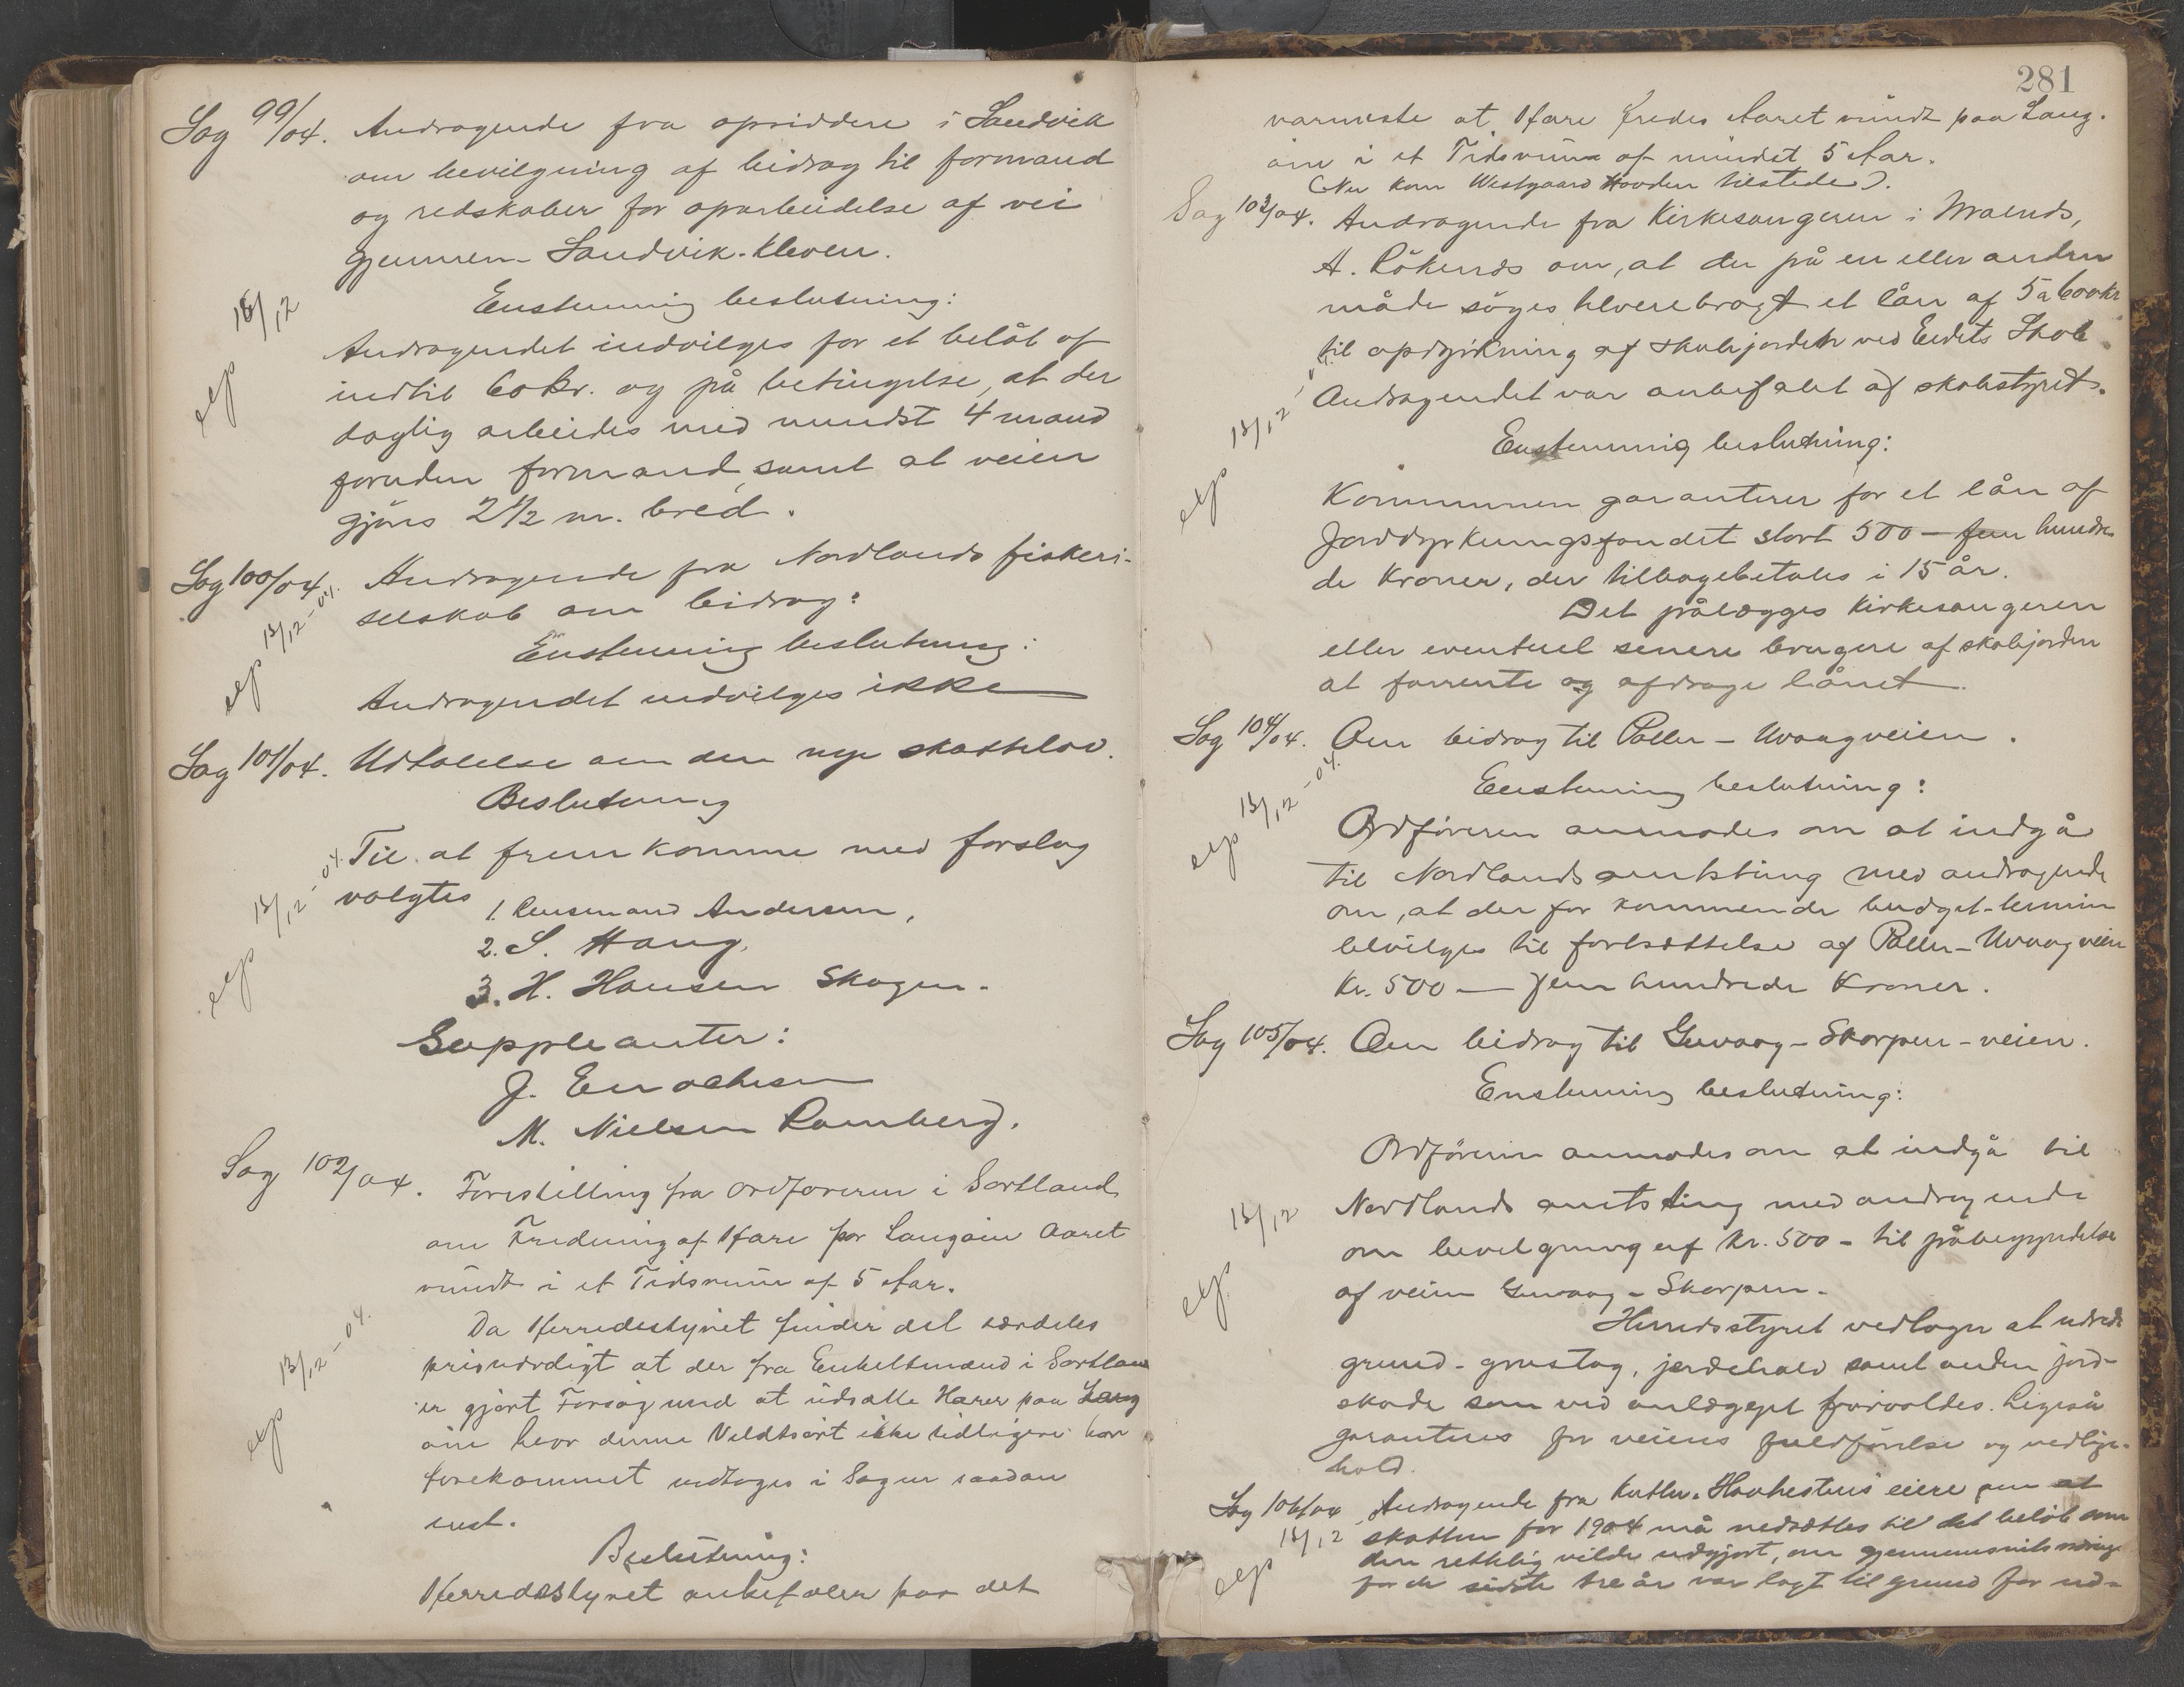 Sag 99/04. Andragende fra opsiddere i Sandvik
om bevilgning af bidrag til formand
og redskaber for oparbeidelse af vei
gjennem Sandvik-kleven.
Enstemmig beslutning:
exp 15/12
Andragendet indvilges for et beløb af
indtil 60 kr. og på betingelse, at der
daglig arbeides med mindst 4 mand
foruden formand, samt at veien
gjøres 2 1/2 m. bred.
Sag 100/04. Andragende fra Nordlands fiskeri-
selskab om bidrag:
exp 13/12-04.
Enstemmig beslutning:
Andragendet indvilges ikke
Sag 101/04. Udtalelse om den nye skattelov.
Beslutning
exp 13/12-04.
Til at fremkomme med forslag
valgtes
1. Lensmand Andersen,
2. S. Haug,
3. H. Hansen Skagen.
Suppleanter:
J. Enochsen
M. Nielsen Ramberg.
Sag 102/04. Forestilling fra ordføreren i Sortland
om Fredning af Hare paa Langøen Aaret
rundt i et Tidsrum af 5 Aar.
exp 13/12-04.
Da Herredsstyret finder det særdeles
prisværdigt at der fra Enkeltmænd i Sortland
er gjort Forsøg med at udsætte Harer paa Lang
øen hvor denne Vildtsort ikke tidligere har
forekommet vedtoges i Sagen saadan
Beslutning:
Herredsstyret anbefaler paa det
281
varmeste at Hare fredes Aaret rundt paa Lang-
øen i et Tidsrum af mindst 5 Aar.
(Nu kom Westgaard Hovden tilstede).
Sag 103/04. Andragende fra Kirkesangeren i Malnes,
A. Røkenes om, at der på en eller anden
måde søges tilveiebragt et lån af 5 a 600 kr
til opdyrkning af skolejorden ved Eidets Skole
Andragendet var anbefalet af skolestyret.
exp 13/12-04.
Enstemmig beslutning:
Kommunen garanterer for et lån af
Jorddyrkningsfondet stort 500 – fem hundre-
de Kroner, der tilbagebetales i 15 år.
Det pålægges Kirkesangeren
eller eventuel senere brugere af skolejorden
at forrente og afdrage lånet.
Sag 104/04. Om bidrag til Pollen – Uvaagveien.
exp 13/12-04.
Enstemmig beslutning:
Ordføreren anmodes om at indgå
til Nordlands amtsting med andragende
om, at der for kommende budget-termin
bevilges til fortsættelse af Pollen–Uvaagveien
Kr. 500 — fem hundrede Kroner.
Sag 105/04. Om bidrag til Guvaag–Skorpen–veien.
Enstemmig beslutning:
exp 13/12
Ordføreren anmodes om at indgå til
Nordlands amtsting med andragende
om bevilgning af Kr. 500 – til påbegyndelse
af veien Guvaag–Skorpen.
Herredsstyret vedtager at udrede
grund-grustag, gjerdehold samt anden jord-
skade som ved anlægget forvoldes. Ligeså
garanteres for veiens fuldførelse og vedlige-
hold.
Sag 106/04 Andragende fra Kutter Havhestens eiere om at
exp 13/12
skatten for 1904 må nedsættes til det beløb som
den rettelig vilde udgjort, om gjennemsnits
for de sidste tre år var lagt til grund for ud-